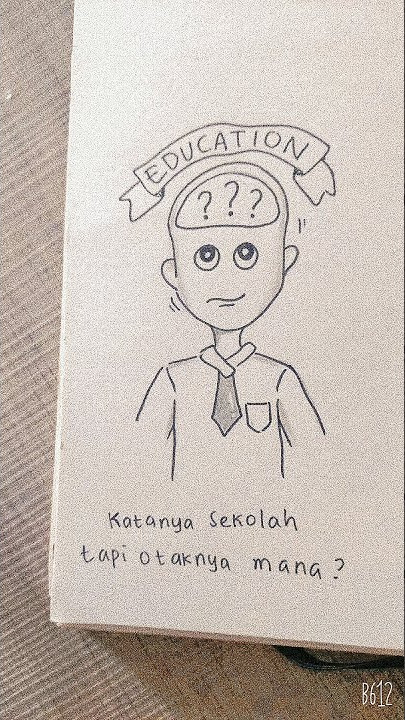 EDUCATION
? ? ?
Katanya Sekolah
tapi otaknya mana?
B612